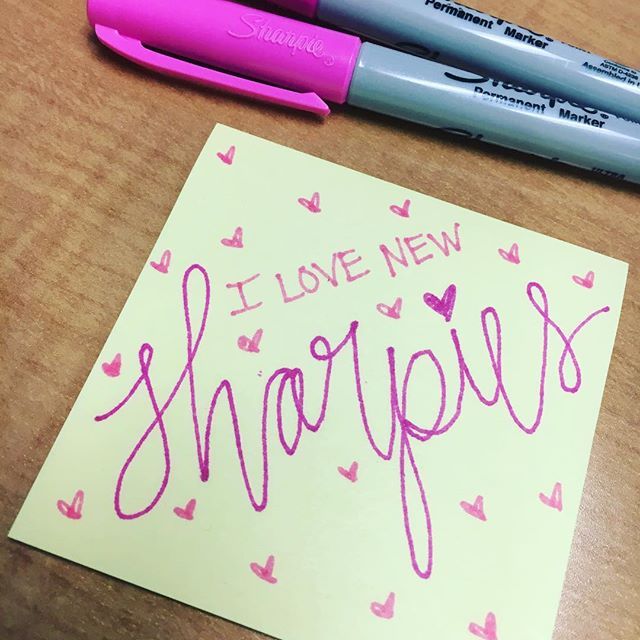 Sharpie
Permanent Marker
Sharpie
Permanent Marker
I LOVE NEW
sharpies